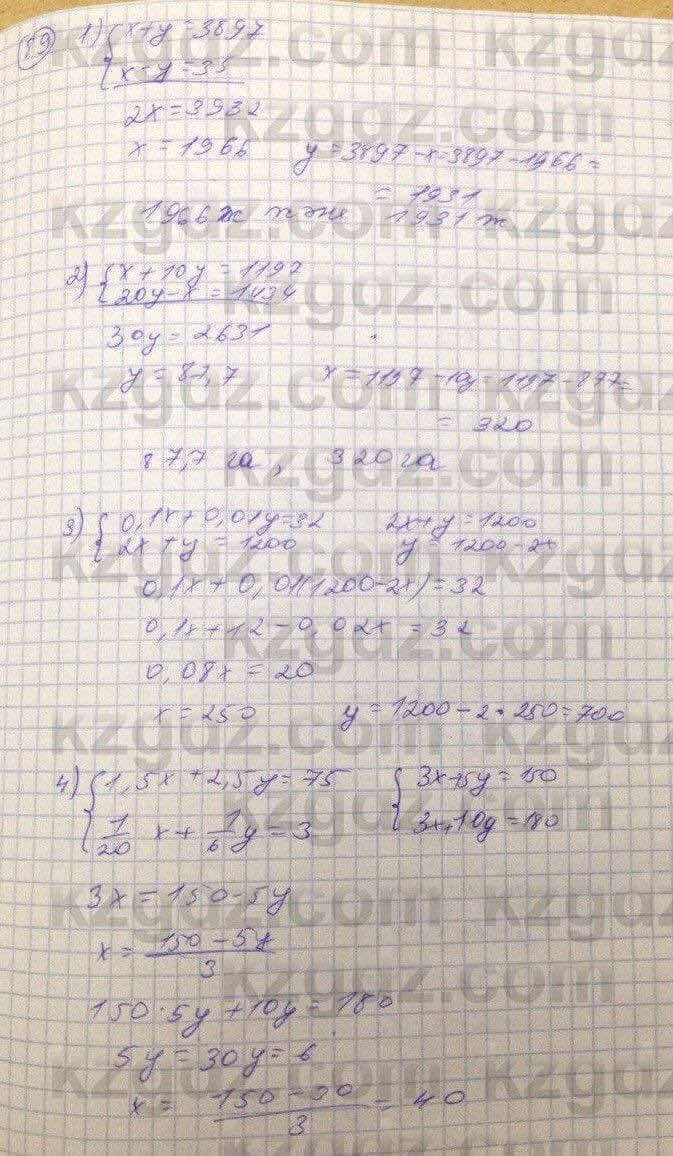 89 1) { x+y=3897
x-y=35
2x=3932
x=1966 y=3897-x=3897-1966=
=1931
1966ж және 1931ж
2) { x+10y=1197
20y-x=1434
30y=2631
y=87,7 x=1197-10y=1197-877=
= 320
87,7 га, 320 га
3) { 0,1x+0,01y=32 2x+y=1200
2x+y=1200 y=1200-2x
0,1x+0,01(1200-2x)=32
0,1x+12-0,02x=32
0,08x=20
x=250 y=1200-2•250=700
4) { 1,5x+2,5y=75 { 3x+5y=150
1/20 x+1/6 y=3 3x+10y=180
3x=150-5y
x= 150-5y/3
150-5y+10y=180
5y=30 y=6
x= 150-30/3 = 40
kzgdz.com